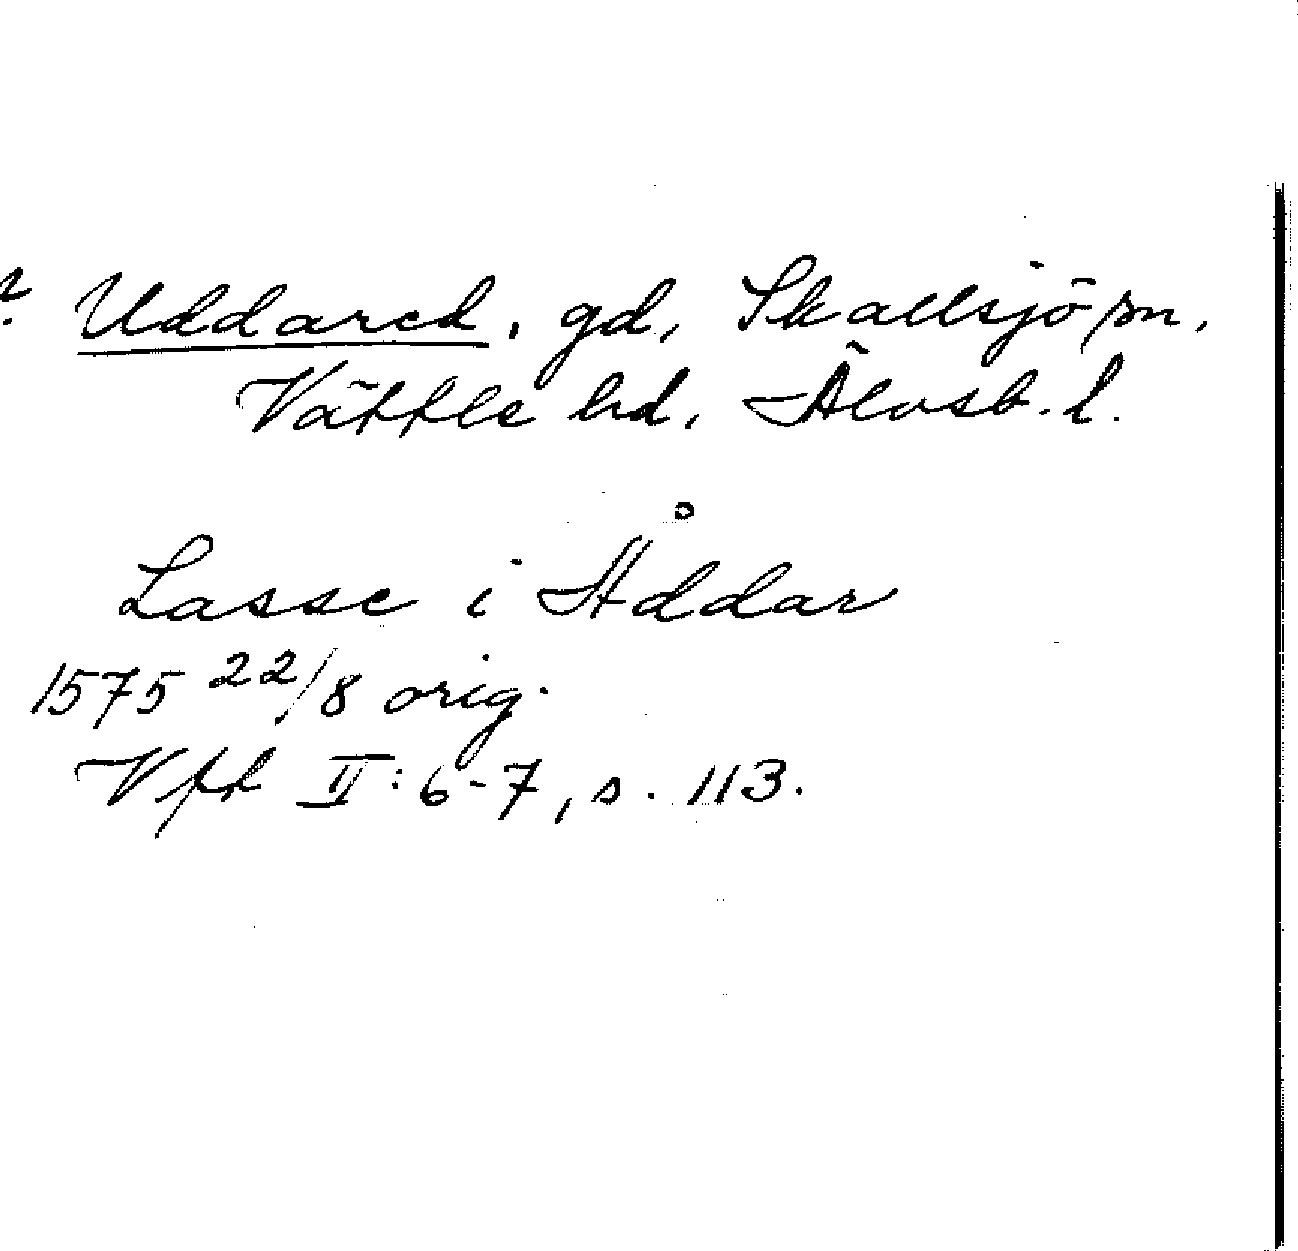 ? Uddared, gd, Skallsjö sn,
Vättle hd, Älvsb. l.
Lasse i Åddar
1575 22/8 orig.
Vft II: 6-7, s. 113.